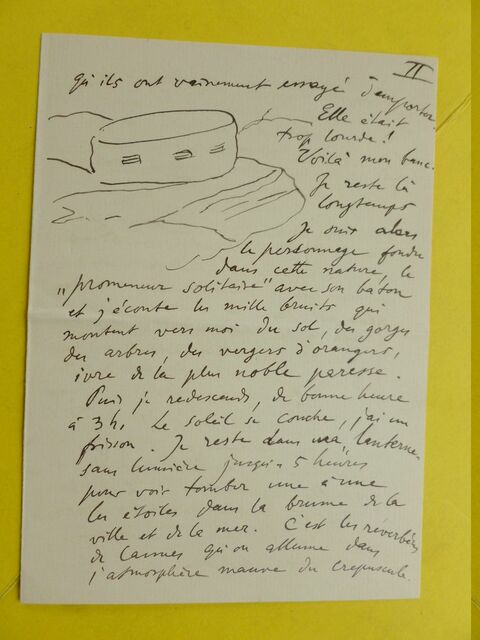 II
qu'ils ont vainement essayé d'emporter.
Elle était
trop lourde!
Voilà mon banc.
Je reste là
longtemps
Je suis alors
le personnage fondu
dans cette nature, le
„promeneur solitaire" avec son bâton
et j'écoute les mille bruits qui
montent vers moi du sol, des gorges
des arbres, des vergers d'orangers,
ivre de la plus noble paresse.
Puis je redescends, de bonne heure
à 3h. Le soleil se couche, j'ai un
frisson. Je reste dans ma "lanterne"
sans lumière jusqu'à 5 heures
pour voir tomber une à une
les étoiles dans la brume de la
ville et de la mer. C'est les réverbères
de Cannes qu'on allume dans
l'atmosphère mauve du crepuscule.